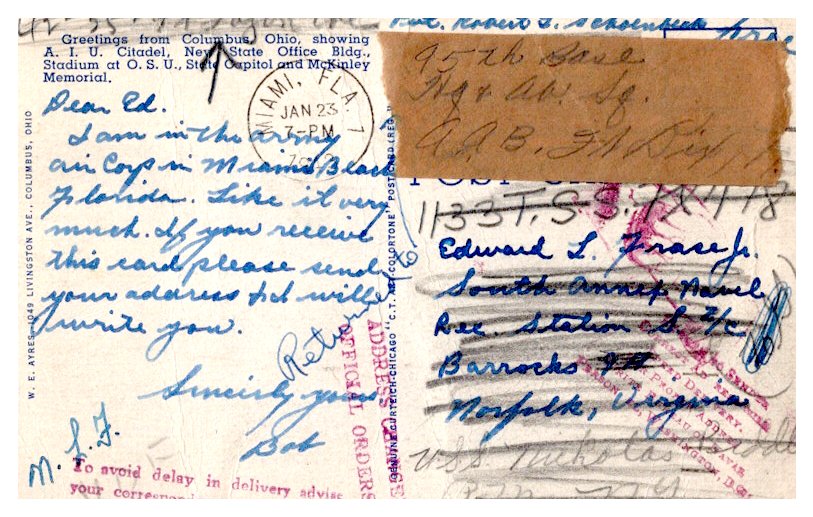 Pvt. Robert L. Schoenbeck
Greetings from Columbus, Ohio, showing
A. I. U. Citadel, New State Office Bldg.,
Stadium at O. S. U., State Capitol and McKinley
Memorial.
MIAMI, FLA. 1
JAN 23
7-PM
Dear Ed.
I am in the army
air Corps in Miami Beach
Florida. Like it very
much. If you receive
this card please send
your address & I will
write you.
Sincerly yours
Bob
M. L. F.
Returned to
W. E. AYRES, 1049 LIVINGSTON AVE., COLUMBUS, OHIO
GENUINE CURTEICH-CHICAGO "C.T. ART-COLORTONE" POST CARD (REG.
95th Base
Hq & Ab. Sq.
A A B. Ft Dix
POST
1133 T. S. S.
Edward L. Frase Jr.
South Annex Naval
Rec. Station S 2/c
Barrocks
Norfolk, Virginia
USS Nicholas Biddle
ADDRESS CHANGE
OFFICIAL ORDERS
To avoid delay in delivery advise
your correspond
WASHINGTON, D.C.